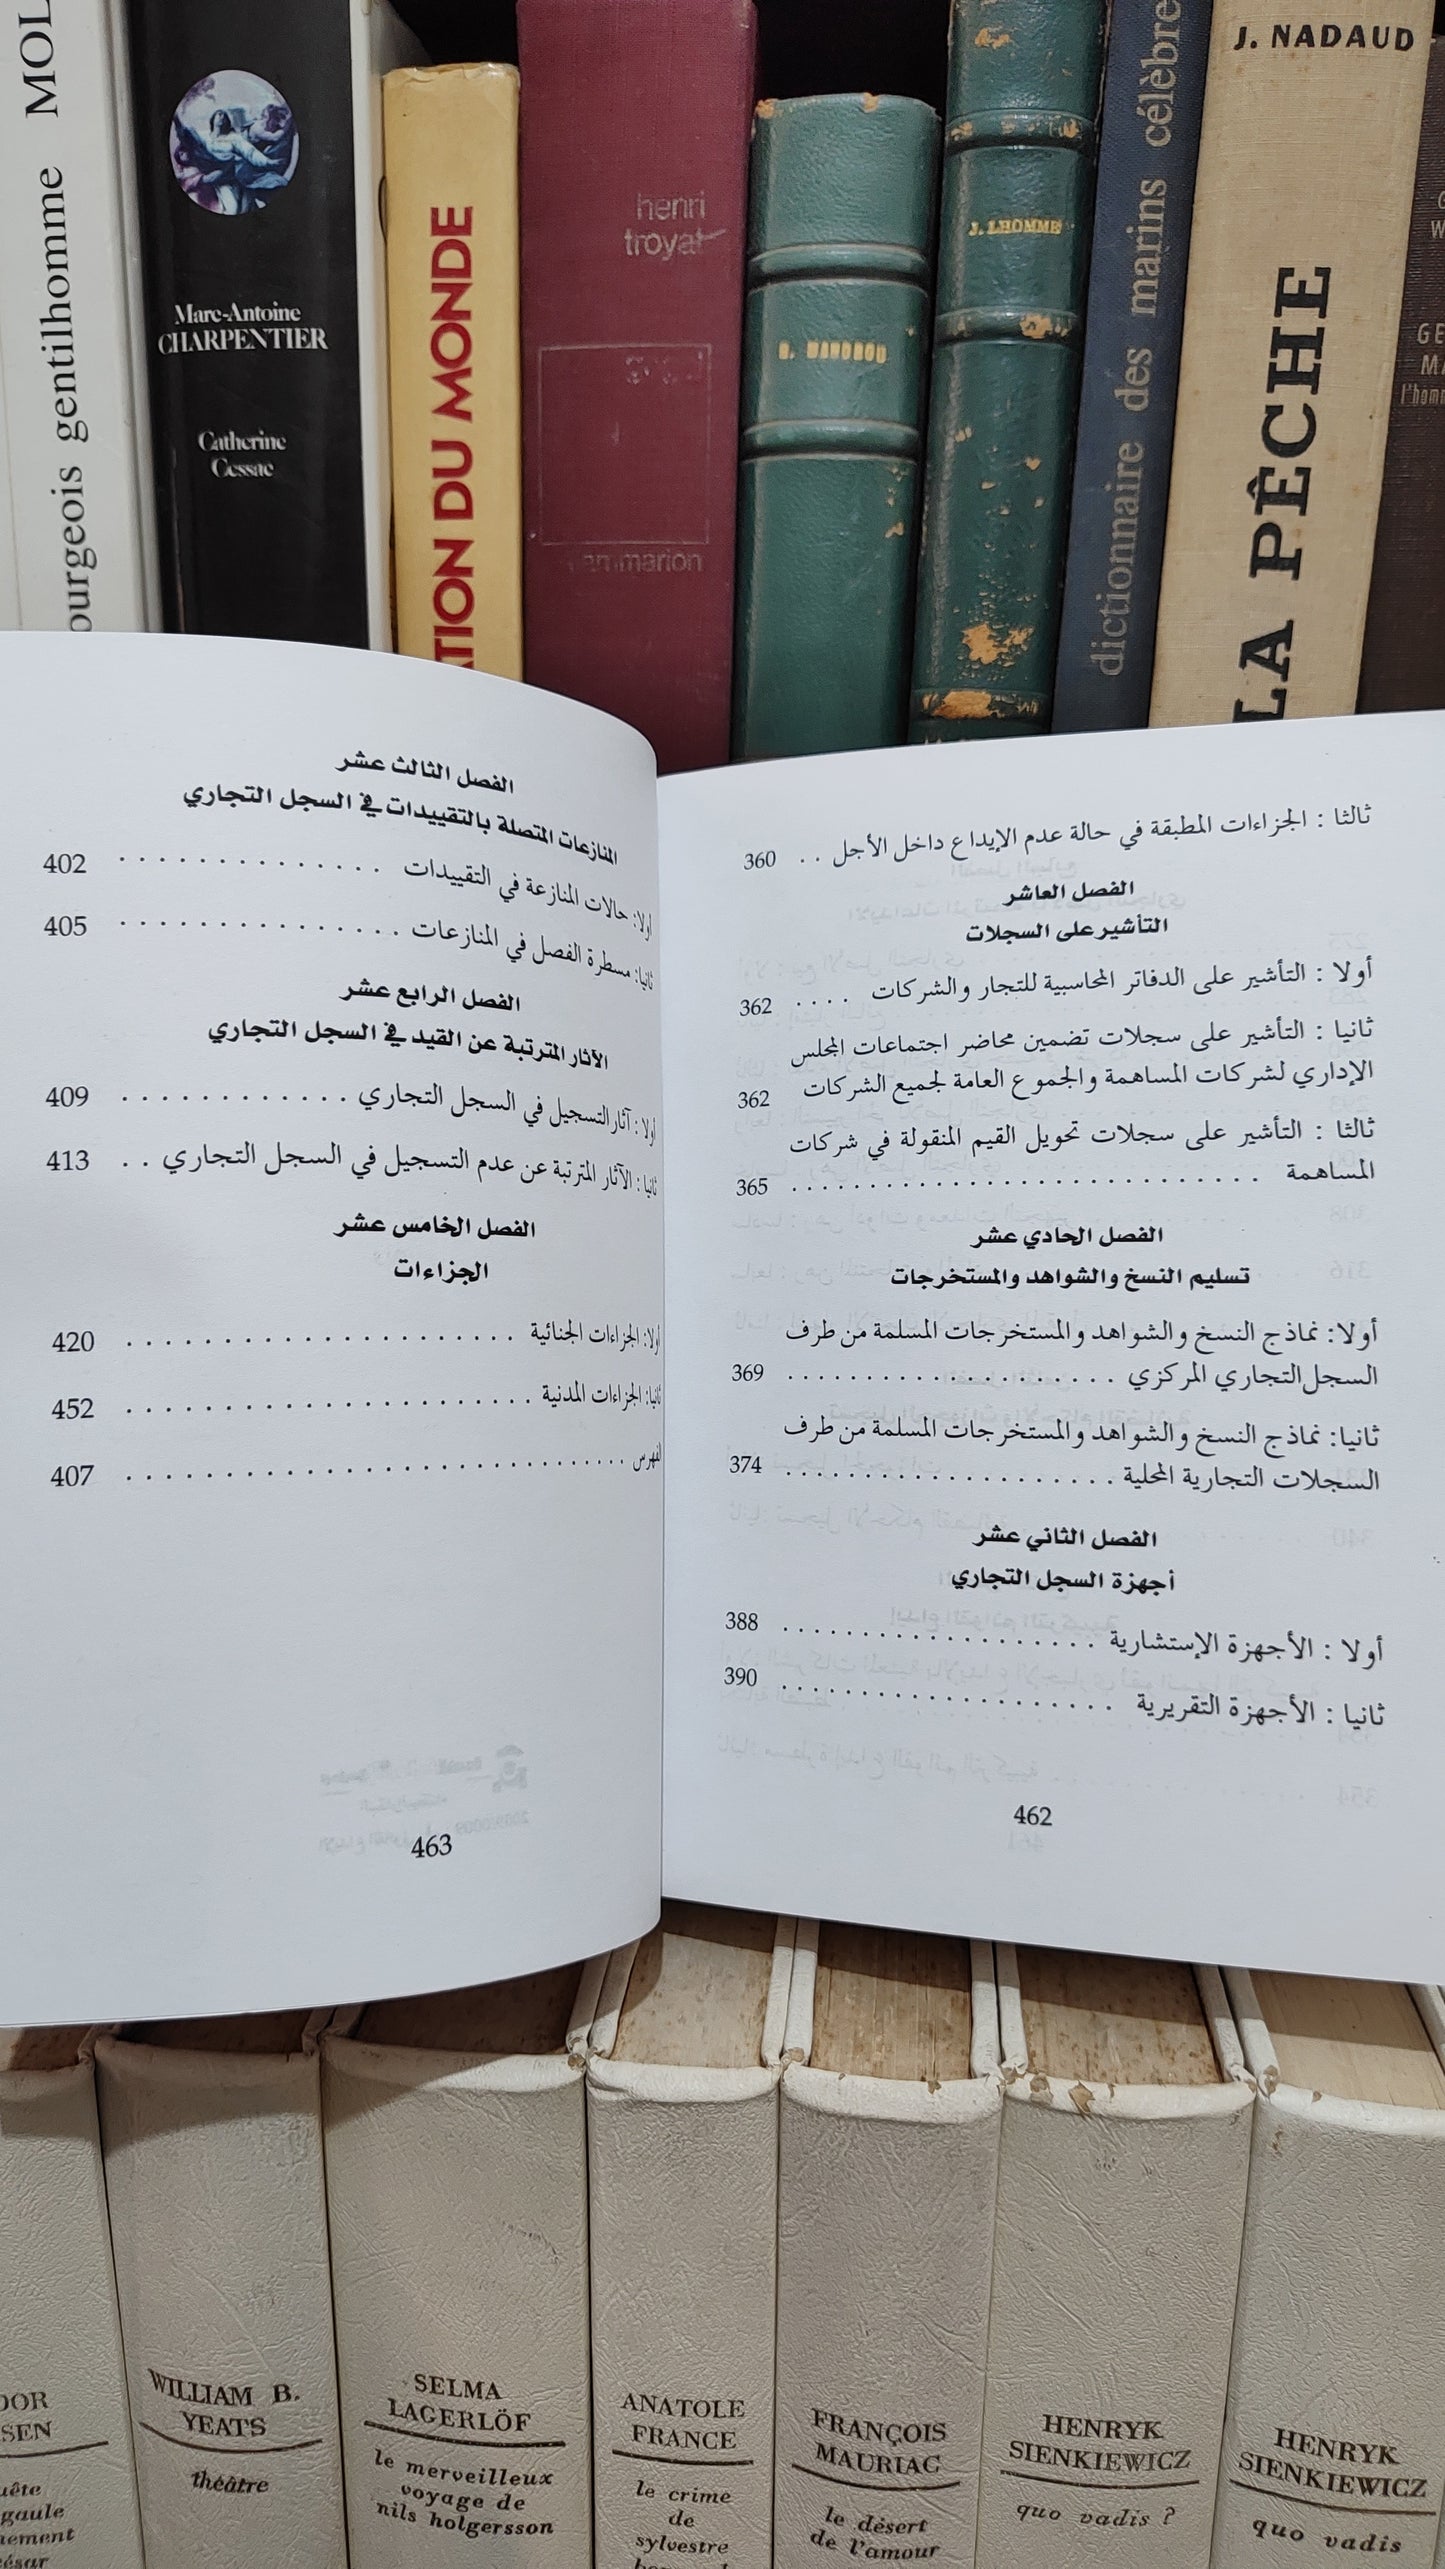 MOL
ourgeois gentilhomme
Marc-Antoine
CHARPENTIER
Catherine
Cessac
ATION DU MONDE
henri
troyat
flammarion
J. LHOMME
dictionnaire des marins célèbre
J. NADAUD
LA PÊCHE
ثالثا : الجزاءات المطبقة في حالة عدم الإيداع داخل الأجل . . 360
الفصل العاشر
التأشير على السجلات
أولا : التأشير على الدفاتر المحاسبية للتجار والشركات . . . . 362
ثانيا : التأشير على سجلات تضمين محاضر اجتماعات المجلس
الإداري لشركات المساهمة والجموع العامة لجميع الشركات 362
ثالثا : التأشير على سجلات تحويل القيم المنقولة في شركات
المساهمة . . . . . . . . . . . . . . . . . . . . . . . . . . . . . . 365
الفصل الحادي عشر
تسليم النسخ والشواهد والمستخرجات
أولا: نماذج النسخ والشواهد والمستخرجات المسلمة من طرف
السجل التجاري المركزي . . . . . . . . . . . . . . . . . . . . . 369
ثانيا: نماذج النسخ والشواهد والمستخرجات المسلمة من طرف
السجلات التجارية المحلية . . . . . . . . . . . . . . . . . . . . . 374
الفصل الثاني عشر
أجهزة السجل التجاري
أولا : الأجهزة الإستشارية . . . . . . . . . . . . . . . . . . . . 388
ثانيا : الأجهزة التقريرية . . . . . . . . . . . . . . . . . . . . . 390
462
الفصل الثالث عشر
المنازعات المتصلة بالتقييدات في السجل التجاري
أولا: حالات المنازعة في التقييدات . . . . . . . . . . . . . . 402
ثانيا: مسطرة الفصل في المنازعات . . . . . . . . . . . . . . . 405
الفصل الرابع عشر
الآثار المترتبة عن القيد في السجل التجاري
أولا : آثار التسجيل في السجل التجاري . . . . . . . . . . . . 409
ثانيا : الآثار المترتبة عن عدم التسجيل في السجل التجاري . . 413
الفصل الخامس عشر
الجزاءات
أولا: الجزاءات الجنائية . . . . . . . . . . . . . . . . . . . . . . 420
ثانيا: الجزاءات المدنية . . . . . . . . . . . . . . . . . . . . . . . 452
الفهرس . . . . . . . . . . . . . . . . . . . . . . . . . . . . . 407
463
WILLIAM B.
YEATS
théâtre
SELMA
LAGERLÖF
le merveilleux
voyage de
nils holgersson
ANATOLE
FRANCE
le crime
de
sylvestre
FRANÇOIS
MAURIAC
le désert
de l'amour
HENRYK
SIENKIEWICZ
quo vadis ?
HENRYK
SIENKIEWICZ
quo vadis